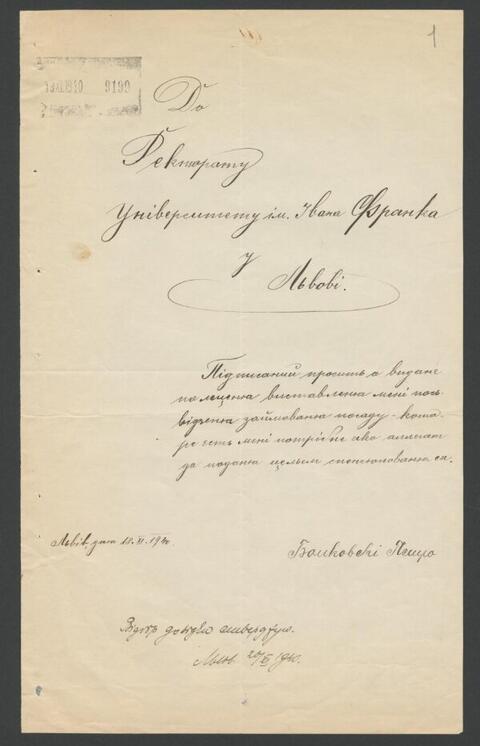 1
9190
До
Ректорату
Університету ім. Івана Франка
у
Львові.
Підписаний просить о видане
полецена виставлена мені пось-
відченя займованя посаду - кото-
ре єсть мені потрібне яко аллегат
до поданя целым спенсионованя ся.
Львів, дня 18. XI. 1940.
Баиковскі Петро
Відбір довідки стверджую.
Львів 20/XI 1940.